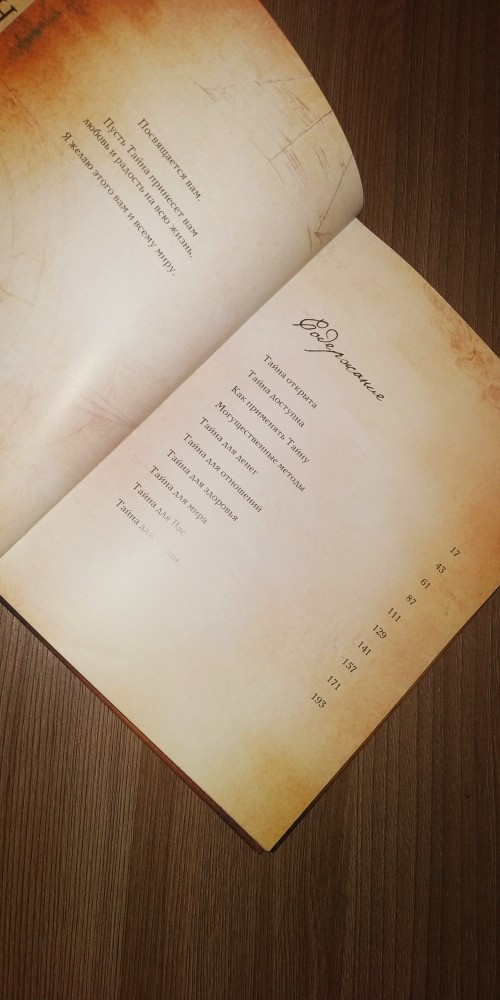 Посвящается вам.
Пусть Тайна принесет вам
любовь и радость на всю жизнь.
Я желаю этого вам и всему миру.
Содержание
Тайна открыта 17
Тайна доступна 43
Как применять Тайну 61
Могущественные методы 87
Тайна для денег 111
Тайна для отношений 129
Тайна для здоровья 141
Тайна для мира 157
Тайна для Вас 171
Тайна 193